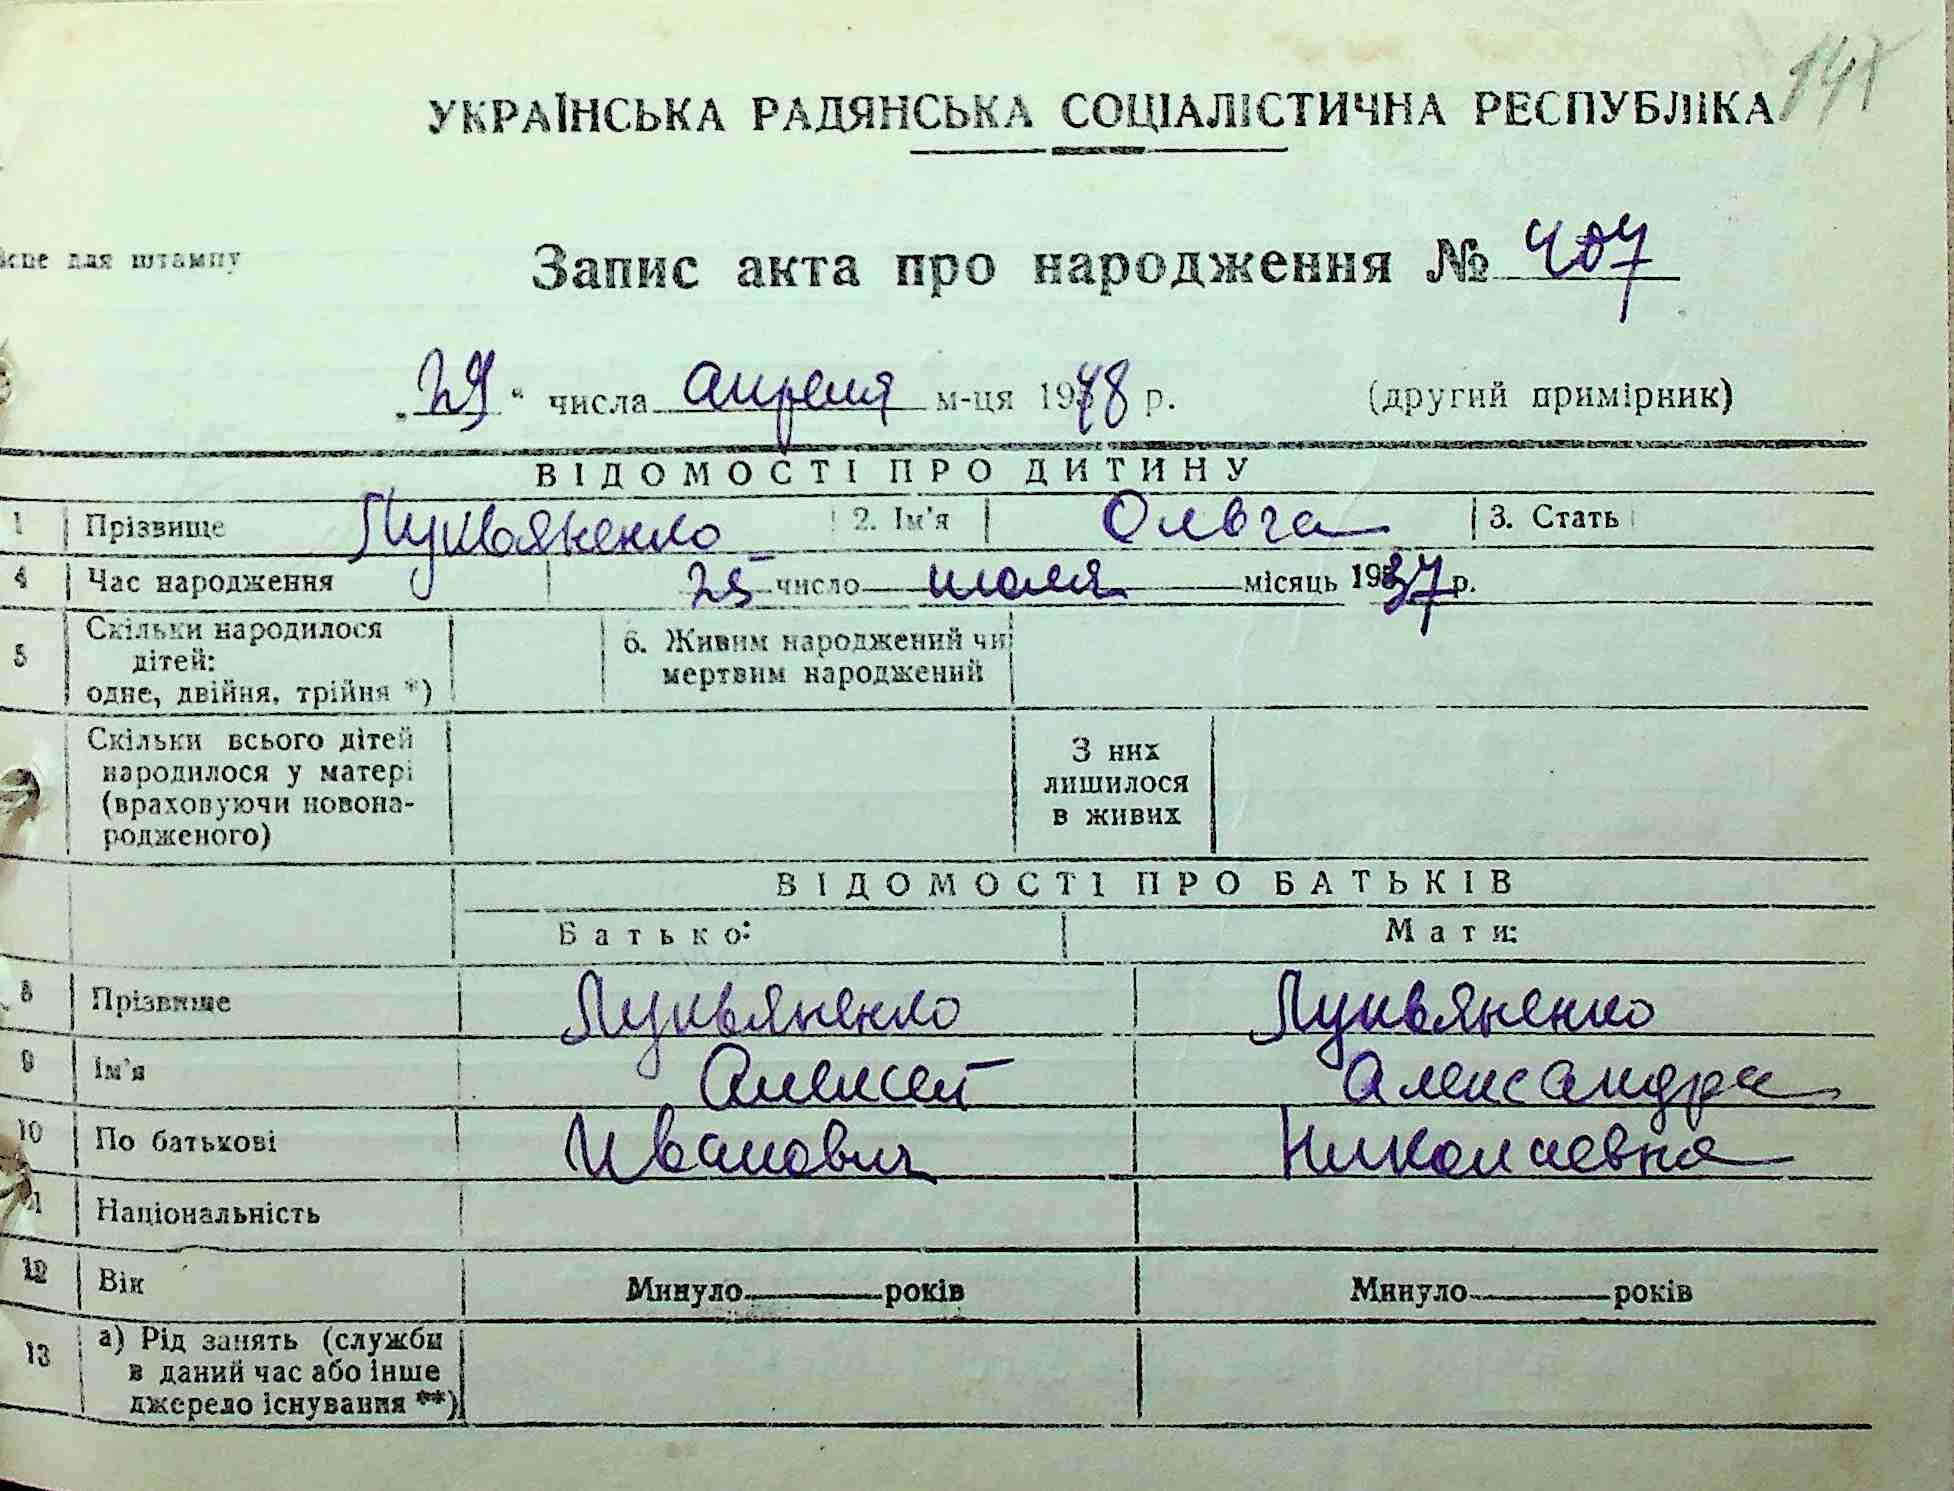 147
УКРАЇНСЬКА РАДЯНСЬКА СОЦІАЛІСТИЧНА РЕСПУБЛІКА
для штампу
Запис акта про народження № 407
„29“ числа апреля м-ця 1948 р. (другий примірник)
ВІДОМОСТІ ПРО ДИТИНУ
1 Прізвище Лукьяненко 2. Ім'я Ольга 3. Стать
4 Час народження 25 число июля місяць 1937 р.
5 Скільки народилося дітей: одне, двійня, трійня *) 6. Живим народжений чи мертвим народжений
Скільки всього дітей народилося у матері (враховуючи новонародженого) З них лишилося в живих
ВІДОМОСТІ ПРО БАТЬКІВ
Батько: Мати:
8 Прізвище Лукьяненко Лукьяненко
9 Ім'я Алексей Александра
10 По батькові Иванович Николаевна
11 Національність
12 Вік Минуло років Минуло років
13 а) Рід занять (служби в даний час або інше джерело існування **)